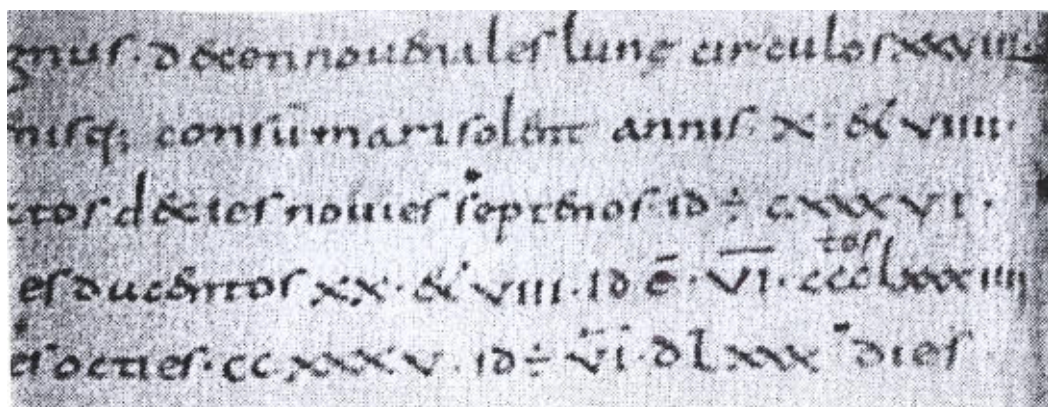 gnus. decennouenales lunę circulos xxviii.
nisq; consūmari solent annis. x. & viiii.
tos decies nouies septenos. id ÷ cxxxvi.
es ducentos xx. & viii. id ē. V̅I̅. ccctoslxxxiiii
es octies. cc xxxv. id ÷ v̅i̅. dlxxx dies